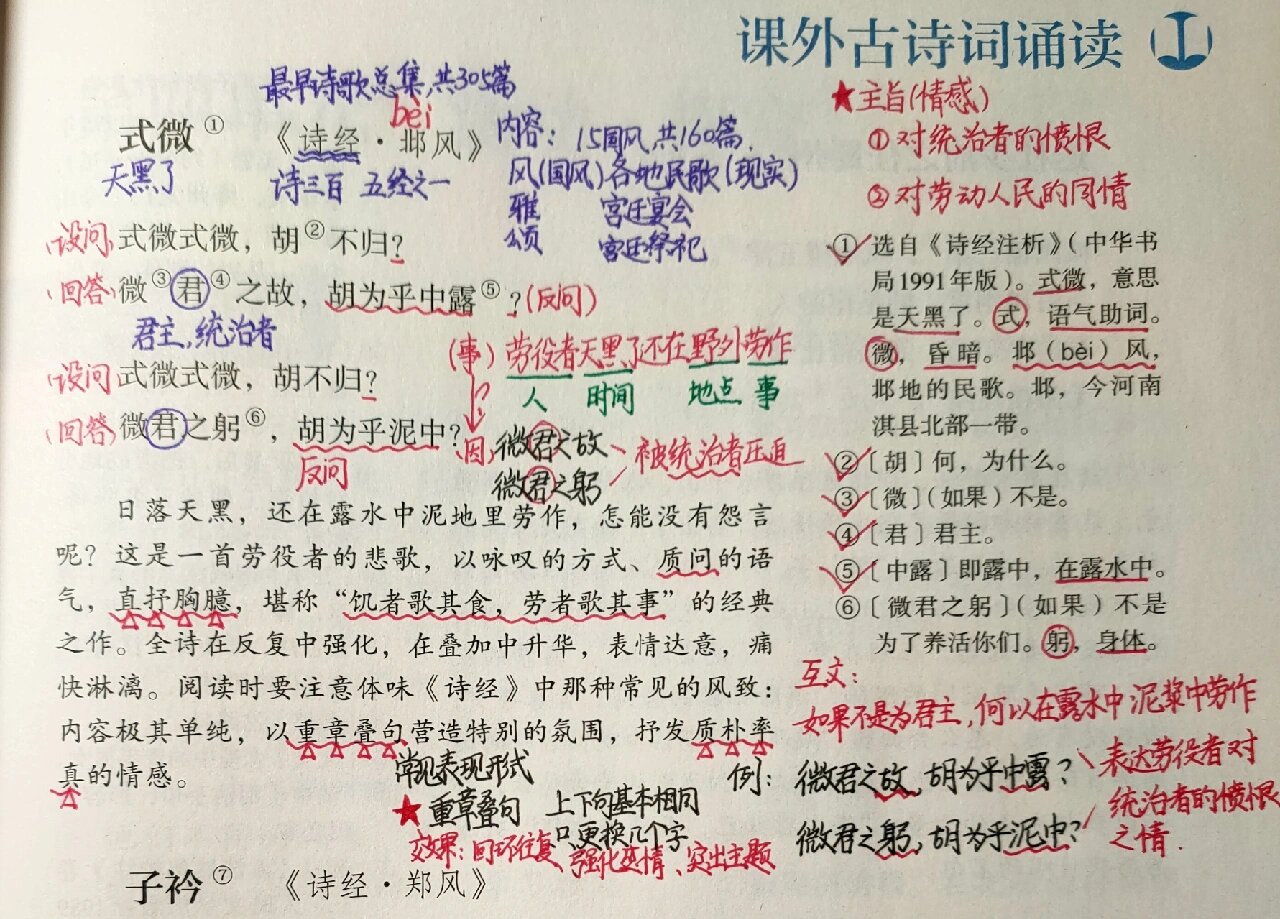 课外古诗词诵读
最早诗歌总集,共305篇
bèi
式微① 《诗经·邶风》
天黑了
诗三百 五经之一
内容: 15国风,共160篇.
风(国风)各地民歌(现实)
雅 宫廷宴会
颂 宫廷祭祀
设问 式微式微,胡②不归?
回答 微③君④之故,胡为乎中露⑤?(反问)
君主,统治者
设问 式微式微,胡不归?
回答 微君之躬⑥,胡为乎泥中?
反问
(事) 劳役者天黑了还在野外劳作
人 时间 地点 事
因, 微君之故
微君之躬
被统治者压迫
日落天黑,还在露水中泥地里劳作,怎能没有怨言
呢?这是一首劳役者的悲歌,以咏叹的方式、质问的语
气,直抒胸臆,堪称“饥者歌其食,劳者歌其事”的经典
之作。全诗在反复中强化,在叠加中升华,表情达意,痛
快淋漓。阅读时要注意体味《诗经》中那种常见的风致:
内容极其单纯,以重章叠句营造特别的氛围,抒发质朴率
真的情感。
常见表现形式
★重章叠句 上下句基本相同
只更换几个字
效果:回环往复、强化感情、突出主题
子衿⑦ 《诗经·郑风》
★主旨(情感)
①对统治者的愤恨
②对劳动人民的同情
① 选自《诗经注析》(中华书
局1991年版)。式微,意思
是天黑了。式,语气助词。
微,昏暗。邶(bèi)风,
邶地的民歌。邶,今河南
淇县北部一带。
②〔胡〕何,为什么。
③〔微〕(如果)不是。
④〔君〕君主。
⑤〔中露〕即露中,在露水中。
⑥〔微君之躬〕(如果)不是
为了养活你们。躬,身体。
互文:
如果不是为君主,何以在露水中泥浆中劳作
例: 微君之故,胡为乎中露?
微君之躬,胡为乎泥中?
表达劳役者对
统治者的愤恨
之情.